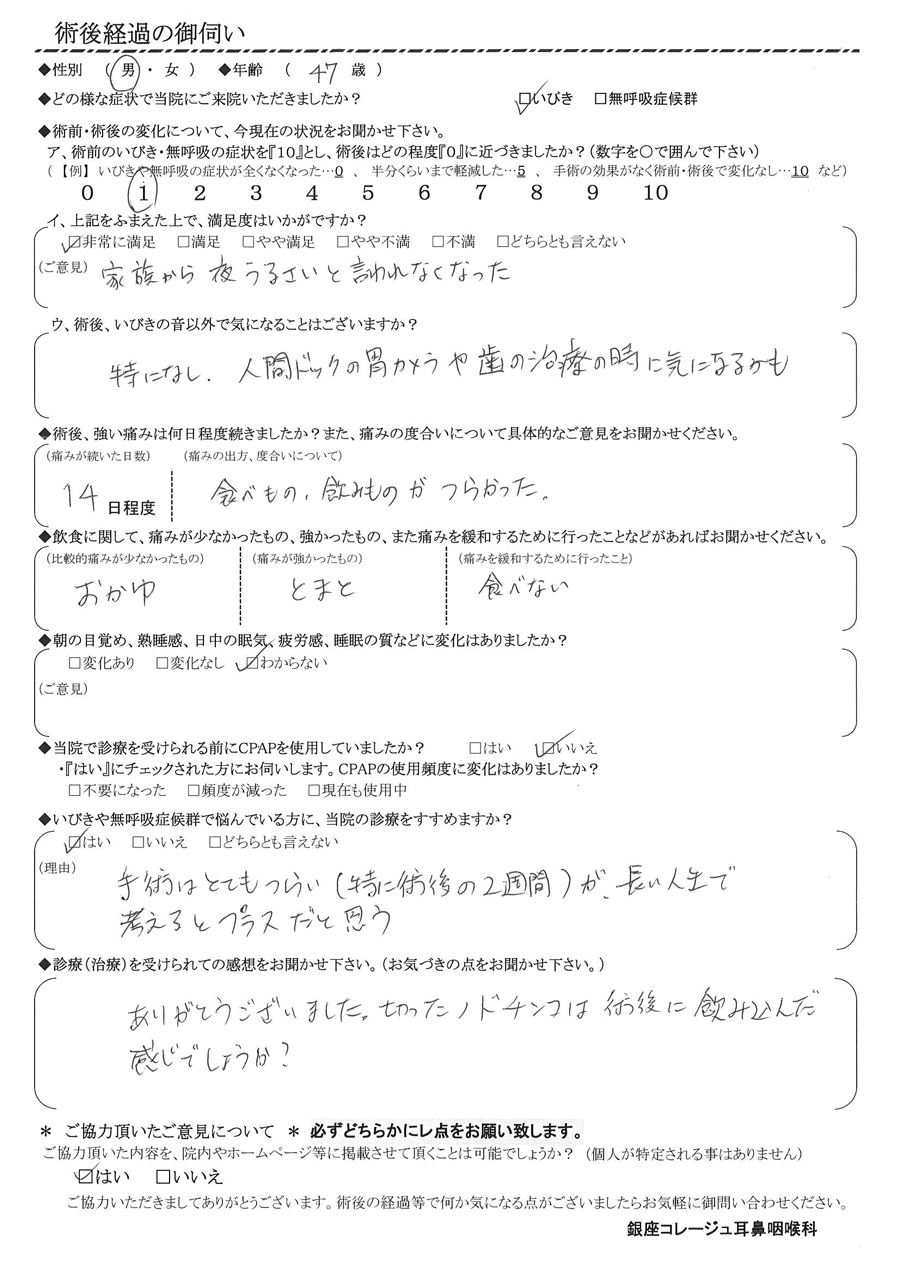 術後経過の御伺い
◆性別 (男・女) ◆年齢 (47歳)
◆どの様な症状で当院にご来院いただきましたか? ☑いびき □無呼吸症候群
◆術前・術後の変化について、今現在の状況をお聞かせ下さい。
ア、術前のいびき・無呼吸の症状を『10』とし、術後はどの程度『0』に近づきましたか?(数字を〇で囲んで下さい)
(【例】いびきや無呼吸の症状が全くなくなった…0 、 半分くらいまで軽減した…5 、 手術の効果がなく術前・術後で変化なし…10 など)
0 1 2 3 4 5 6 7 8 9 10
イ、上記をふまえた上で、満足度はいかがですか?
☑非常に満足 □満足 □やや満足 □やや不満 □不満 □どちらとも言えない
(ご意見) 家族から夜うるさいと言われなくなった
ウ、術後、いびきの音以外で気になることはございますか?
特になし. 人間ドックの胃カメラや歯の治療の時に気になるかも
◆術後、強い痛みは何日程度続きましたか?また、痛みの度合いについて具体的なご意見をお聞かせください。
(痛みが続いた日数) (痛みの出方、度合いについて)
14日程度 食べもの、飲みものがつらかった。
◆飲食に関して、痛みが少なかったもの、強かったもの、また痛みを緩和するために行ったことなどがあればお聞かせください。
(比較的痛みが少なかったもの) (痛みが強かったもの) (痛みを緩和するために行ったこと)
おかゆ とまと 食べない
◆朝の目覚め、熟睡感、日中の眠気、疲労感、睡眠の質などに変化はありましたか?
□変化あり □変化なし ☑わからない
(ご意見)
◆当院で診療を受けられる前にCPAPを使用していましたか? □はい ☑いいえ
・『はい』にチェックされた方にお伺いします。CPAPの使用頻度に変化はありましたか?
□不要になった □頻度が減った □現在も使用中
◆いびきや無呼吸症候群で悩んでいる方に、当院の診療をすすめますか?
☑はい □いいえ □どちらとも言えない
(理由)
手術はとてもつらい(特に術後の2週間)が、長い人生で
考えるとプラスだと思う
◆診療(治療)を受けられての感想をお聞かせ下さい。(お気づきの点をお聞かせ下さい。)
ありがとうございました。切ったノドチンコは術後に飲み込んだ
感じでしょうか?
* ご協力頂いたご意見について * 必ずどちらかにレ点をお願い致します。
ご協力頂いた内容を、院内やホームページ等に掲載させて頂くことは可能でしょうか? (個人が特定される事はありません)
☑はい □いいえ
ご協力いただきましてありがとうございます。術後の経過等で何か気になる点がございましたらお気軽に御問い合わせください。
銀座コレージュ耳鼻咽喉科